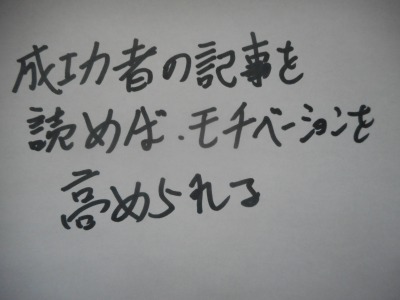 成功者の記事を
読めば、モチベーションを
高められる